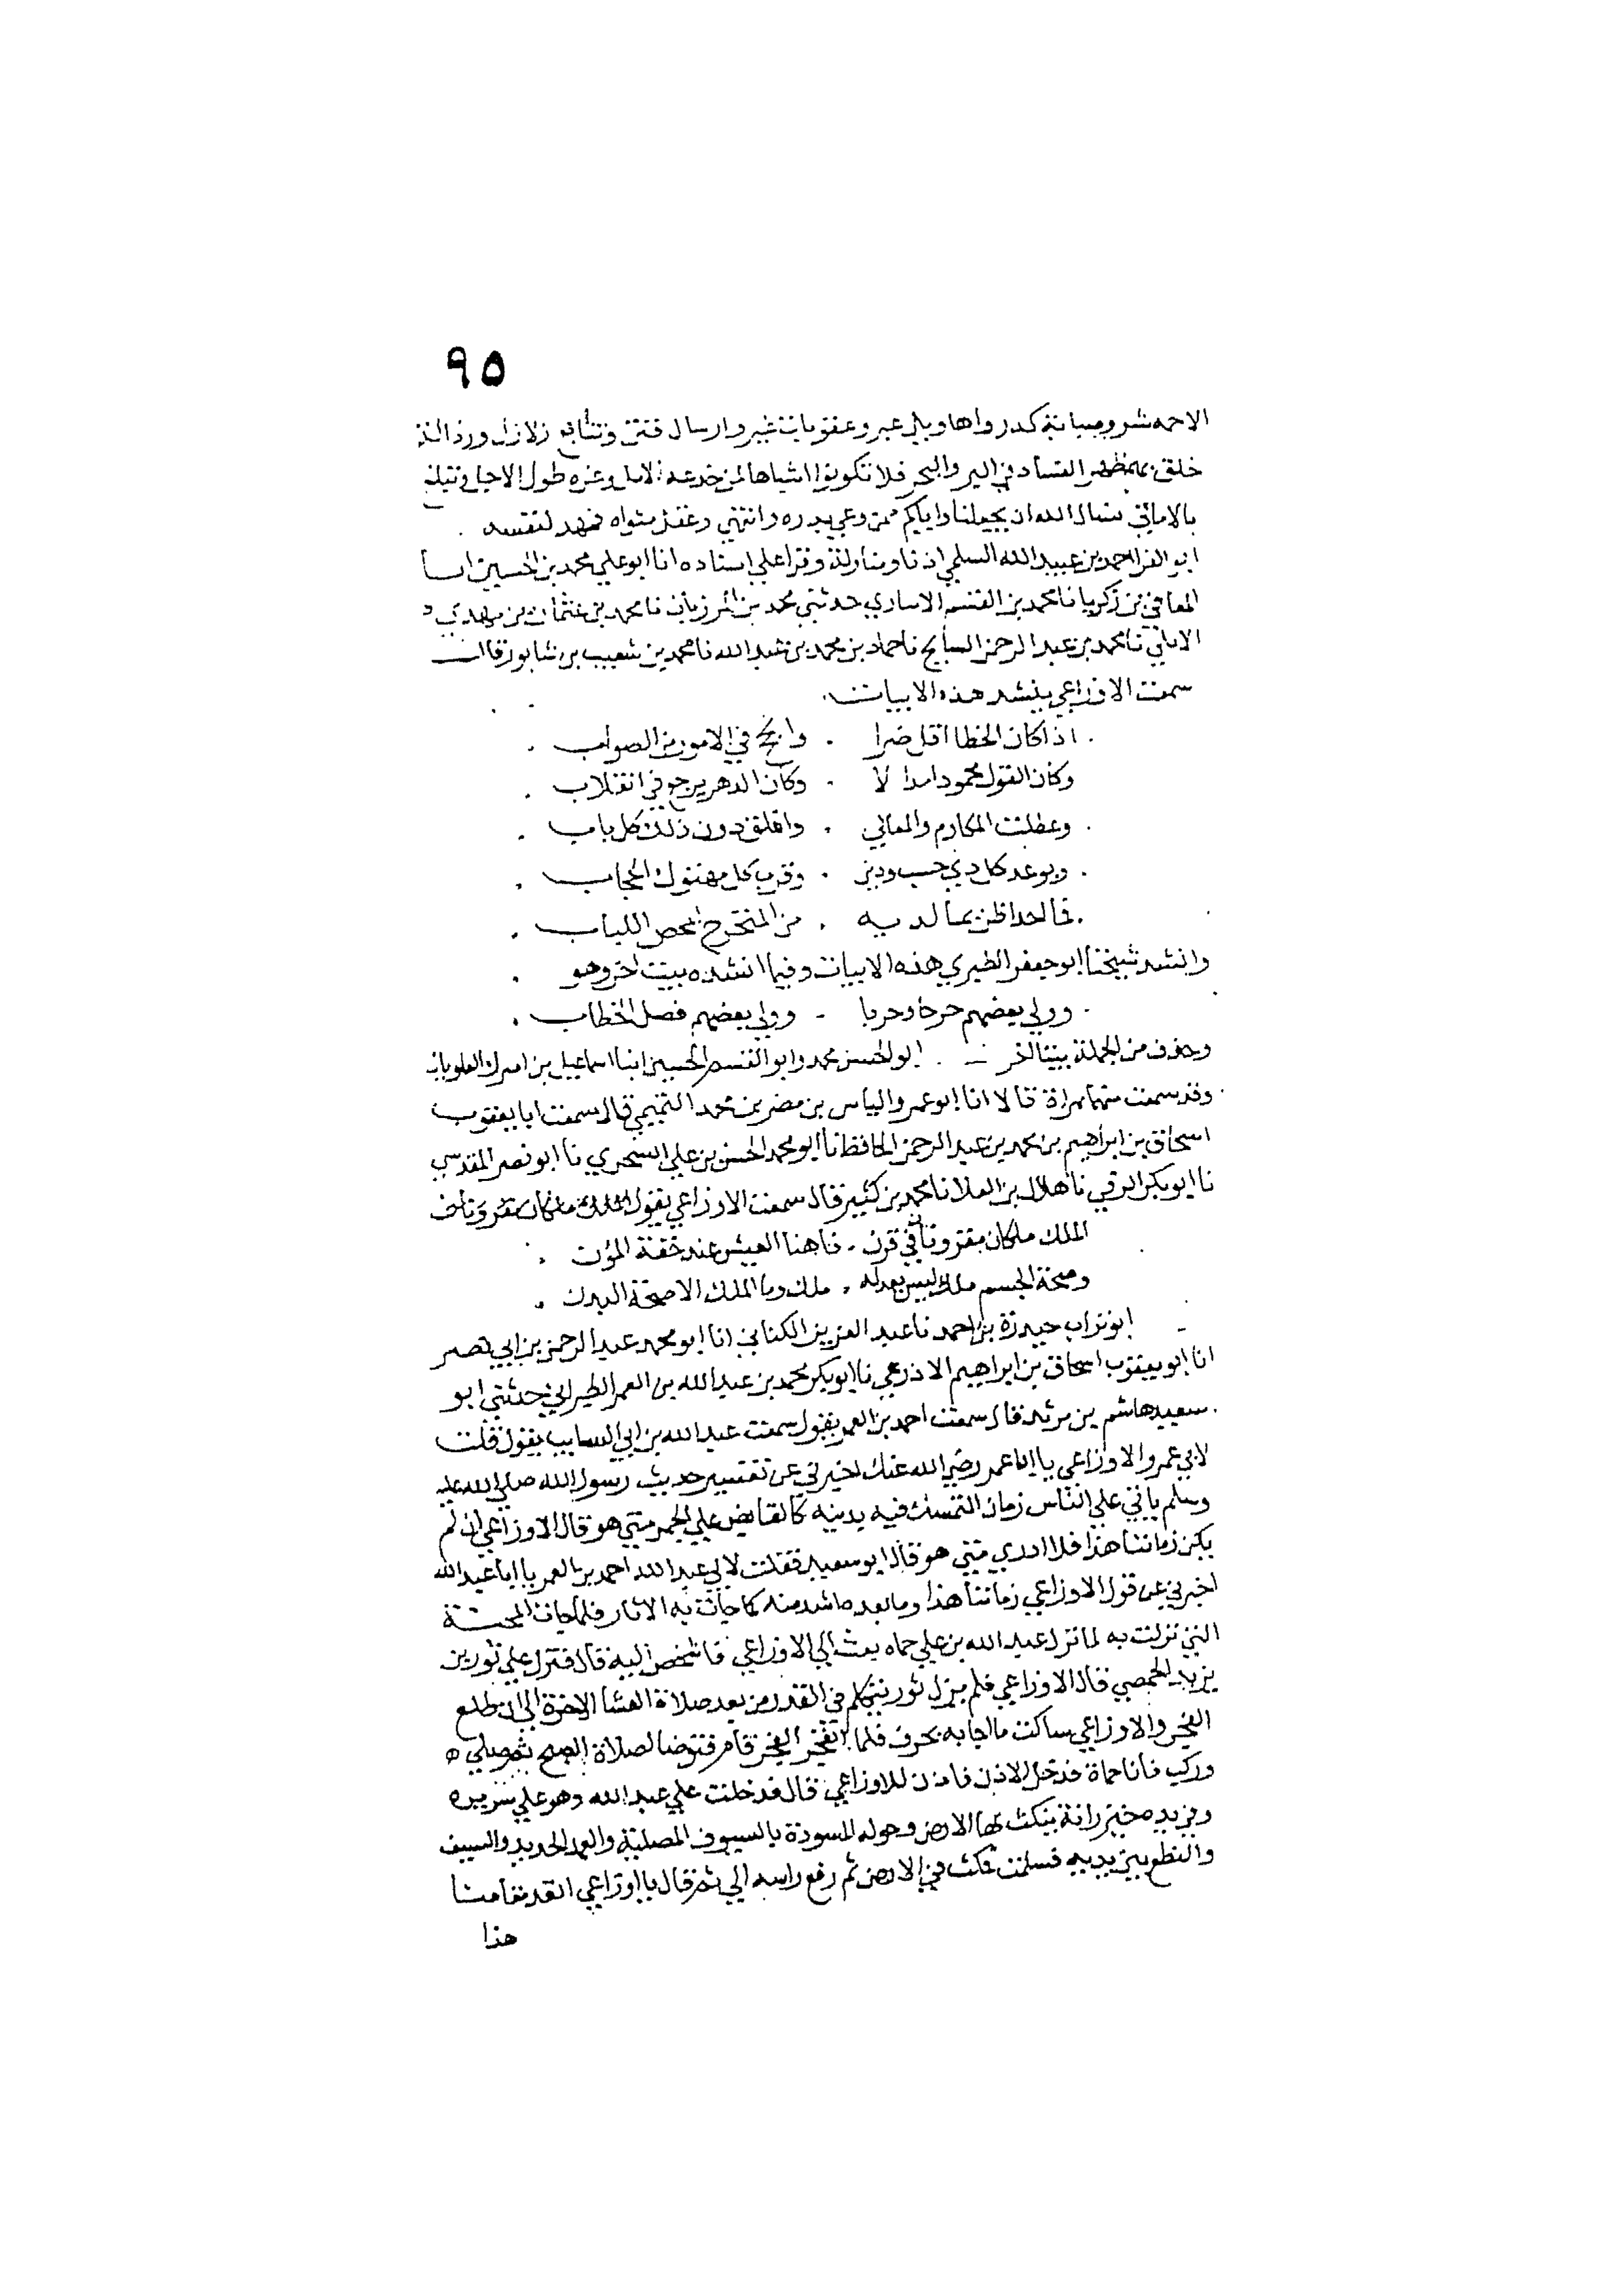 ٩٥
الاحمه شر وصبابة كدر واهاويل عبر وعقوبات غير وارسال فتن وتتابع زلازل ورذالة
خلف بهم ظهر الفساد في البر والبحر فلا تكونوا اشباها لمن خدعه الامل وغره طول الاجل وتبلغ
بالاماني نسال الله ان يجعلنا واياكم ممن وعى نذره وانتهى وعقل مثواه فمهد لنفسه
ابو العز احمد بن عبيد الله السلمي اذنا ومناولة وقرا علي اسناده انا ابو علي محمد بن الحسين انبا
المعافى بن زكريا نا محمد بن القسم الانباري حدثني محمد بن المرزبان نا محمد بن عثمان بن مهدي
نا محمد بن عبد الرحمن السايح نا حماد بن محمد بن عبد الله نا محمد بن شعيب بن شابور قال
سمعت الاوزاعي ينشد هذه الابيات
اذا كان الخطا اقل ضرا . وانجح في الامور من الصواب
وكان القول محمودا مدالا . وكان الدهر يرجو في انقلاب
وعطلت المكارم والمعالي . واغلق دون ذلك كل باب
وبوعد كل ذي حسب ودين . وقرب كل مهتوك الحجاب
فما احد اظن بما لديه . من المتحرج المحص اللباب
وانشد شيخنا ابو جعفر الطبري هذه الابيات وفيما انشده بيت اخر وهو
وولي بعضهم خرجا وحربا . وولي بعضهم فصل الخطاب
وحذف من الجملة بيتا اخر . ابو الحسن محمد وابو القسم الحسين ابنا اسماعيل بن اميرك العلويان
وقد سمعت منهما بهراة قالا انا ابو عمرو الياس بن مضر بن محمد التميمي قال سمعت ابا يعقوب
اسحاق بن ابراهيم بن محمد بن عبد الرحمن الحافظ نا ابو محمد الحسن بن علي السجزي نا ابو نصر المقدسي
نا ابو بكر الرقي نا هلال بن العلا نا محمد بن كثير قال سمعت الاوزاعي يقول
الملك ملكان مقرونان في قرن . فاهنا العيش عند خفة المؤن
وصحة الجسم ملك ليس يعدله . ملك وما الملك الا صحة البدن
ابو تراب حيدرة بن احمد نا عبد العزيز الكتاني انا ابو محمد عبد الرحمن بن ابي نصر
انا ابو يعقوب اسحاق بن ابراهيم الاذرعي نا ابو بكر محمد بن عبد الله بن العمر الطبراني حدثني ابو
سعيد هاشم بن مرثد قال سمعت احمد بن العمر يقول سمعت عبد الله بن ابي السايب يقول قلت
لابي عمرو الاوزاعي يا ابا عمر رضي الله عنك اخبرني عن تفسير حديث رسول الله صلى الله عليه
وسلم ياتي على الناس زمان التمسك فيه بدينه كالقابض على الجمر متى هو قال الاوزاعي ان لم
يكن زماننا هذا فلا ادري متى هو قال ابو سعيد فقلت لابي عبد الله احمد بن العمر يا ابا عبد الله
اخبرني عن قول الاوزاعي زماننا هذا وما بعد ما شد منه كما جات به الاثار فلما جات المحنة
التي نزلت به لما نزل عبد الله بن علي حماه بعث الى الاوزاعي فاشخص اليه قال فنزل على ثور بن
يزيد الحمصي قال الاوزاعي فلم يزل ثور يتكلم في القدر من بعد صلاة العشا الاخرة الى ان طلع
الفجر والاوزاعي ساكت ما اجابه بحرف فلما انفجر الفجر قام فتوضا لصلاة الصبح ثم صلى
وركب فاتا حماة فدخل الاذن فاذن للاوزاعي قال فدخلت على عبد الله وهو على سريره
وفي يده خيزرانة ينكث بها الارض وحوله المسودة بالسيوف المصلتة والعمد الحديد والسيف
والنطع بين يديه فسلمت فنكث في الارض ثم رفع راسه الي ثم قال يا اوزاعي اتعد مقامنا
هذا